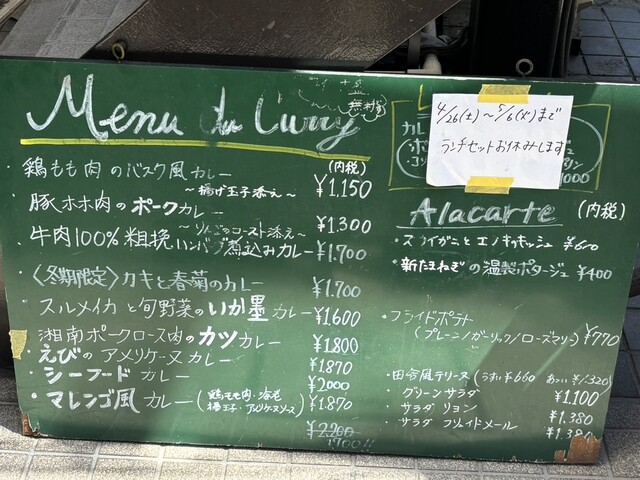 Menu du Curry
無料
鶏もも肉のバスク風カレー
(内税)
〜揚げ玉子添え〜
¥1,150
豚ホホ肉のポークカレー
¥1,300
牛肉100%粗挽ハンバーグ煮込みカレー ¥1,700
〈冬期限定〉カキと春菊のカレー ¥1,700
スルメイカと旬野菜のいか墨カレー ¥1,600
湘南ポークロース肉のカツカレー ¥1,800
えびのアメリケーヌカレー ¥1,870
シーフードカレー ¥2,000
マレンゴ風カレー (鶏もも肉・海老 ¥1,870
揚玉子・アメリケーヌソース)
¥2,200
4/26(土)〜5/6(火)まで
ランチセットお休みします
Alacarte (内税)
・ズワイガニとエノキのキッシュ ¥600
・新たまねぎの温製ポタージュ ¥400
・フライドポテト
(プレーン/ガーリック/ローズマリー) ¥770
・田舎風テリーヌ (うすい¥660 あつい¥1,320)
・グリーンサラダ ¥1,100
・サラダ リヨン ¥1,380
・サラダ フリュイドメール ¥1,380